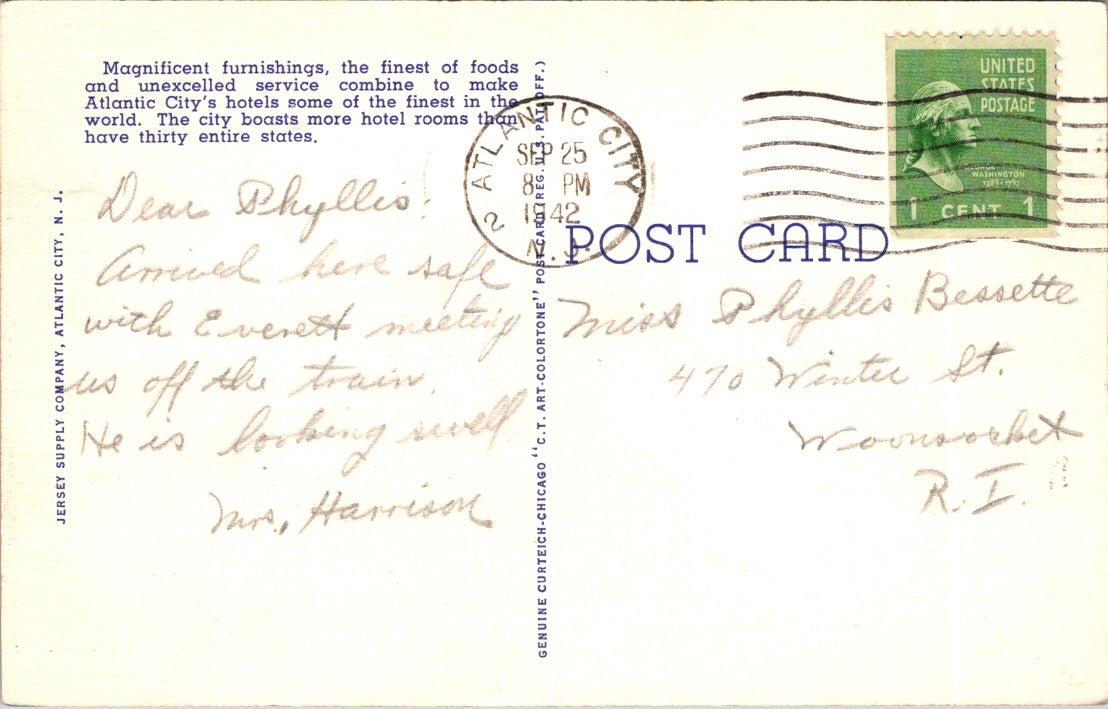 Magnificent furnishings, the finest of foods
and unexcelled service combine to make
Atlantic City's hotels some of the finest in the
world. The city boasts more hotel rooms than
have thirty entire states.
JERSEY SUPPLY COMPANY, ATLANTIC CITY, N. J.
Dear Phyllis:
Arrived here safe
with Everett meeting
us off the train.
He is looking swell
Mrs. Harrison
GENUINE CURTEICH-CHICAGO "C.T. ART-COLORTONE" POST CARD (REG. U.S. PAT. OFF.)
ATLANTIC CITY 2
SEP 25
8 PM
1942
N.J.
POST CARD
UNITED
STATES
POSTAGE
GEORGE
WASHINGTON
1789-1797
1 CENT 1
Miss Phyllis Bessette
470 Winter St.
Woonsocket
R.I.